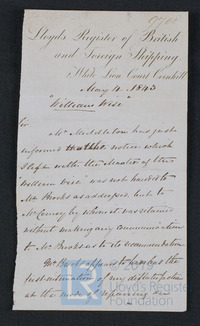 Lloyd's Register of British
and Foreign Shipping
White Lion Court Cornhill
May 4. 1843
"William Wise"
Sir
Mr Middleton has just
informed that the notice which
I left with the Master of the
"William Wise" was not handed to
Mr Brooks as addressed, but to
Mr by whom it was retained
without making any communication
to Mr Brooks as to its
Mr Brooks appears to have had the
first intimation of any
at the mode of repairing
© 2019
Lloyd's Register